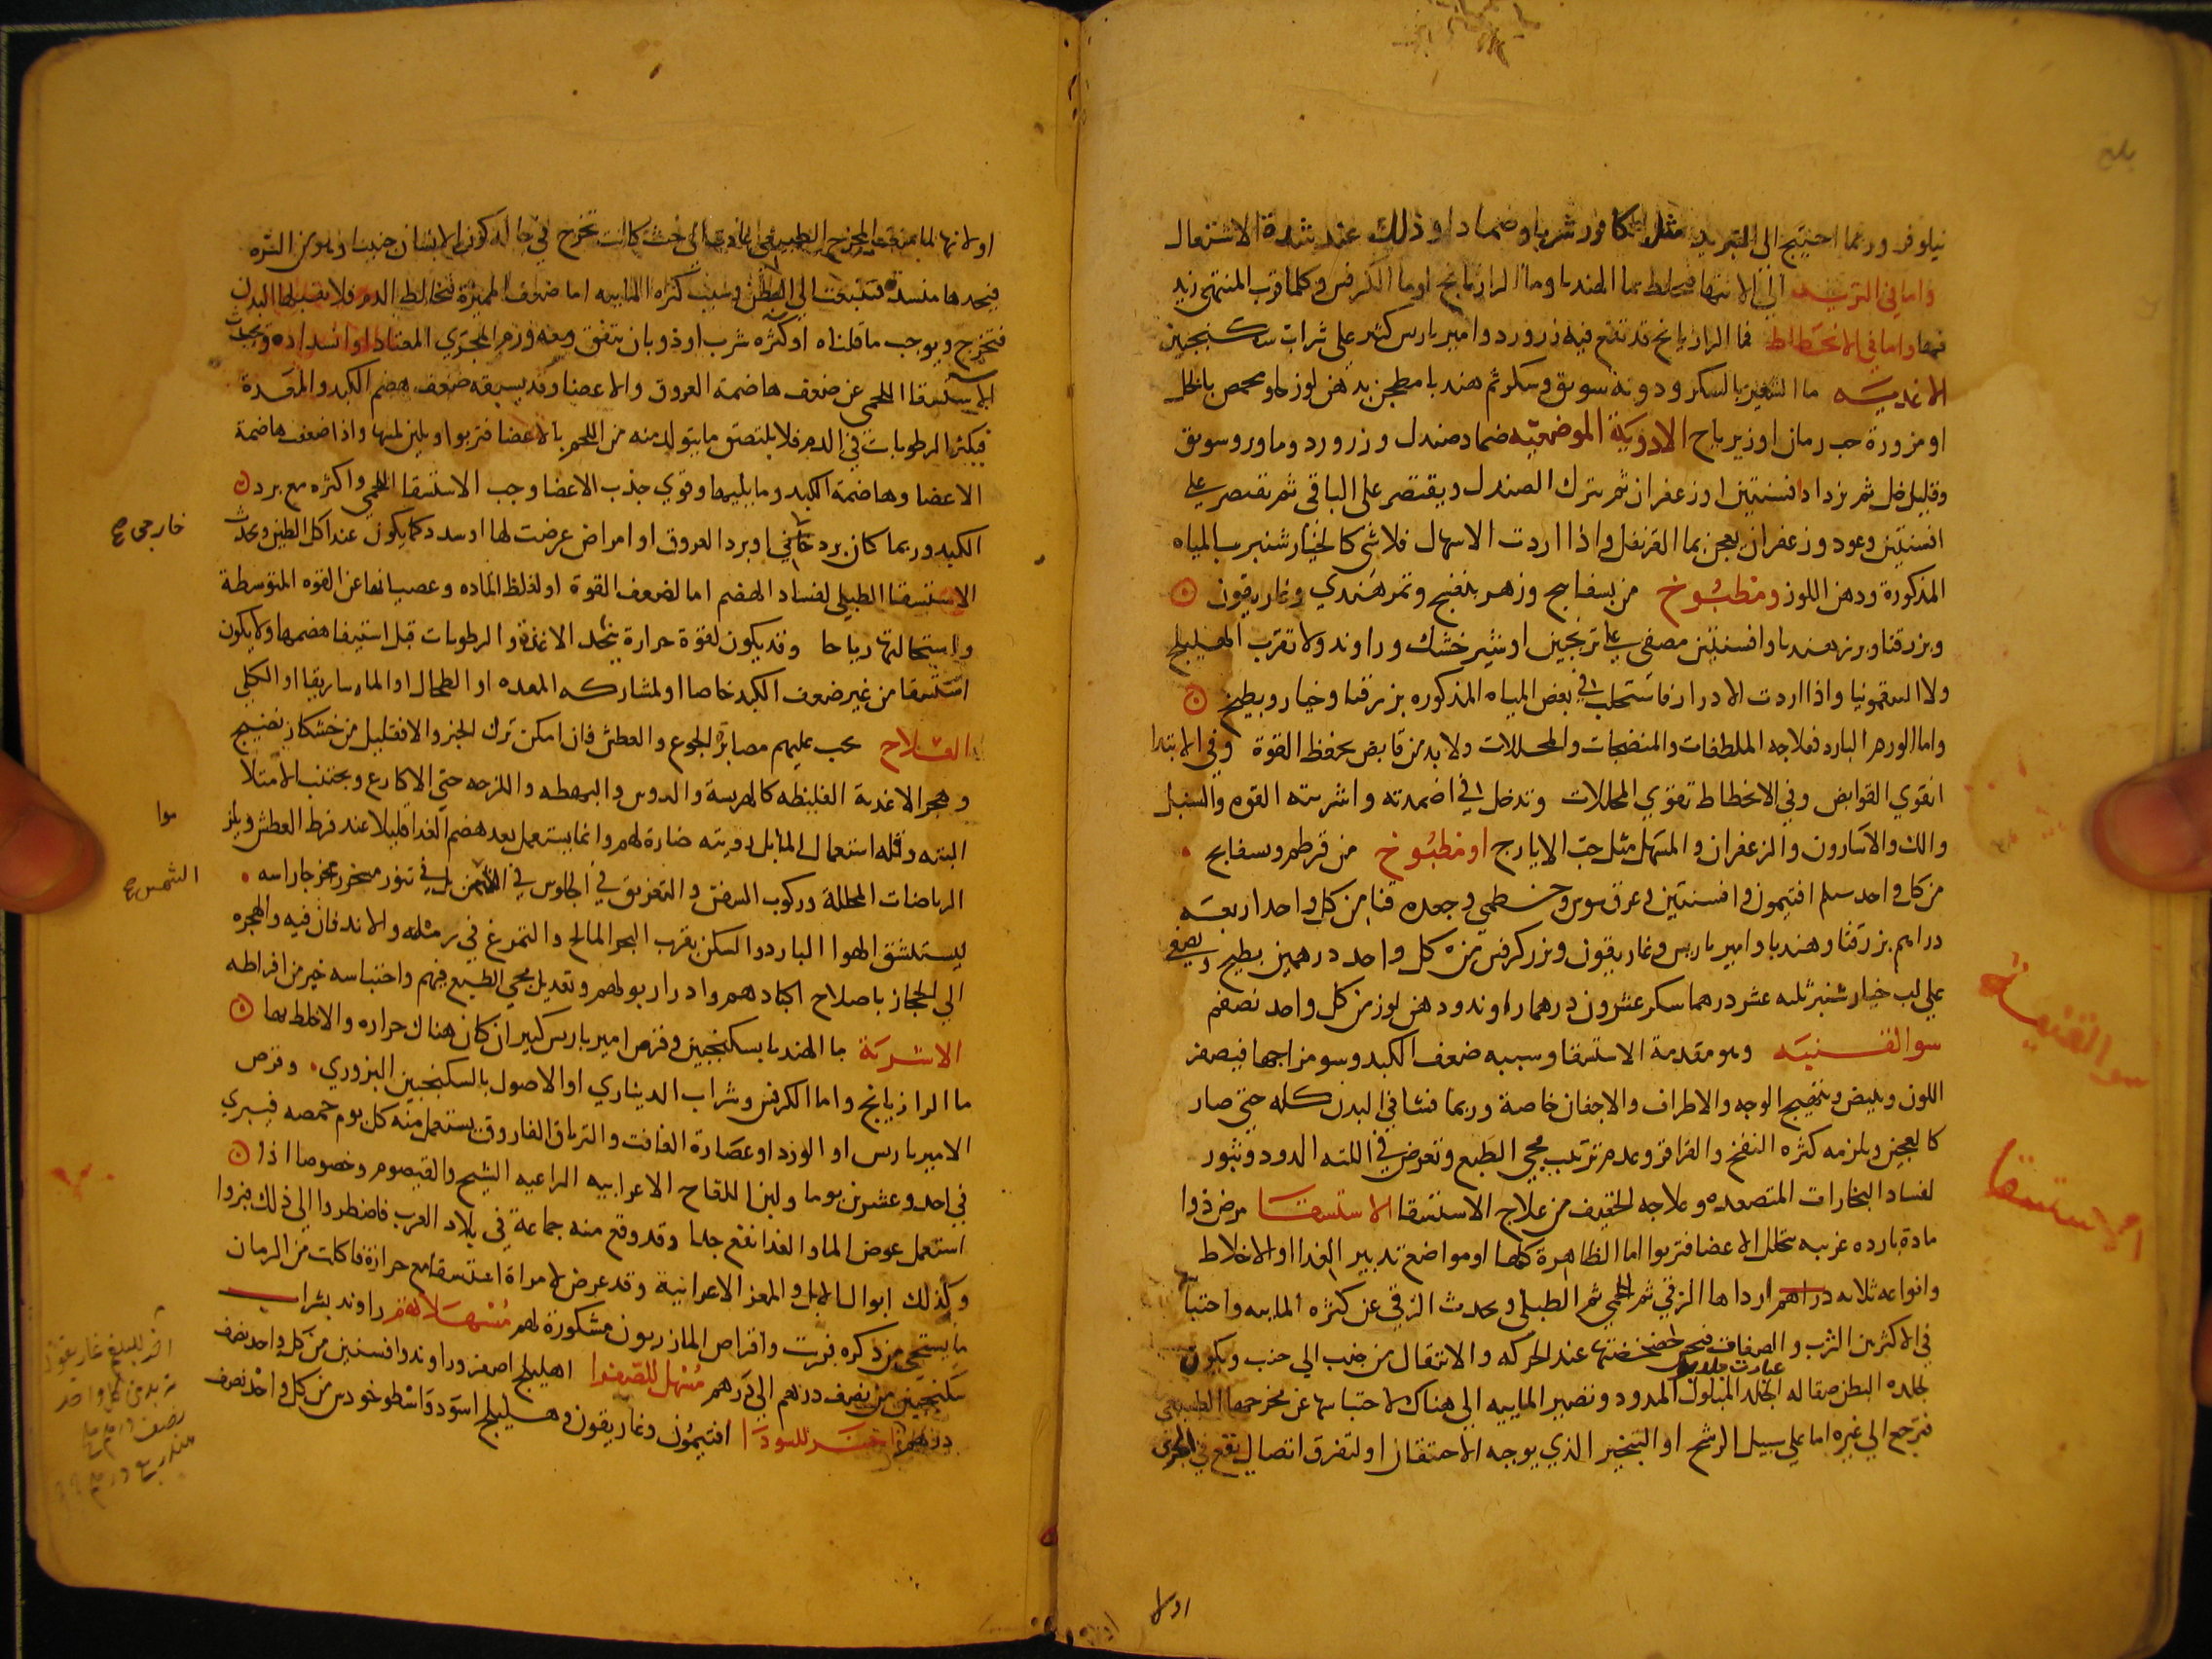 نيلوفر وربما احتيج الى التبريد مثل الكافور شربا وضمادا وذلك عند شدة الاشتعال
واما في التزيد الى الانتها فيخلط بما الهندبا وما الرازيانج او ما الكرفس وكلما قرب المنتهى زيد
فيها واما في الانحطاط فما الرازيانج قد نقع فيه زرورد وامير باريس كثير على شراب سكنجبين
الاغذيه ما الشعير بالسكر ودونه سويق وسكر ثم هندبا مطجن بدهن لوز او محمص بالخل
او مزورة حب رمان او زيرباج الادوية الموضعية ضماد صندل وزرورد وماورد وسويق
وقليل خل ثم يزداد افسنتين او زعفران ثم يترك الصندل ويقتصر على الباقي ثم يقتصر على
افسنتين وعود وزعفران يعجن بما القرنفل واذا اردت الاسهال فلا شي كالخيار شنبر بالمياه
المذكورة ودهن اللوز ومطبوخ من بسفايج وزهر بنفسج وتمر هندي وغاريقون
وبزر قثا وبزر هندبا وافسنتين مصفى على ترنجبين او شير خشك وراوند ولا تقرب الهليلج
ولا السقمونيا واذا اردت الادرار فاستحلب في بعض المياه المذكوره بزر قثا وخيار وبطيخ
واما الورم البارد فعلاجه الملطفات والمنضجات والمحللات ولا بد من قابض يحفظ القوة وفي الابتدا
تقوي القوابض وفي الانحطاط تقوي المحللات وتدخل في اضمدته واشربته القوه والسنبل
واللك والاسارون والزعفران والمسهل مثل حب الايارج او مطبوخ من قرطم وبسفايج
من كل واحد افتيمون وافسنتين وعرق سوس وخطمي وجعده من كل واحد اربعه
دراهم بزر قثا وهندبا وامير باريس وغاريقون وبزر كرفس من كل واحد درهمين يطبخ ويصفى
على لب خيار شنبر ثلثه عشر درهما سكر عشرون درهما راوند ودهن لوز من كل واحد نصف
سو القنيه وهو مقدمة الاستسقا وسببه ضعف الكبد وسو مزاجها فيصفر
اللون ويبيض ويتهيج الوجه والاطراف والاجفان خاصة وربما فشا في البدن كله حتى صار
كالعجين ويلزمه كثره النفخ والقراقر وعدم ترتيب مجي الطبع وتعرض في اللثه الدود وبثور
لفساد البخارات المتصعده وعلاجه الخفيف من علاج الاستسقا الاستسقا مرض ذو
مادة بارده غريبه تتخلل الاعضا فتربوا اما الظاهرة كلها او مواضع تدبير الغدا او الاخلاط
وانواعه ثلاثه ارداها الزقي ثم اللحمي ثم الطبلي ويحدث الزقي عن كثره الماييه واحتباسها
في الاكثر بين الثرب والصفاق فيحس خضخضتها عند الحركه والانتقال من جنب الى جنب ويكون
لجلده البطن صقاله الجلد المبلول الممدود وتصير الماييه الى هناك لاحتباسها عن مخرجها الطبيعي
فترجع الى غيره اما على سبيل الرشح او التبخير الذي يوجبه الاحتقان او لتفرق اتصال يقع في المجرى
اولا
سو القنيه
الاستسقا
اولانها لما المخرج الطبيعي كانت تخرج في حاله كون الانسان جنينا من السره
فيجدها منسدة الى البطن وسبب كثره الماييه اما ضعف المميزة فتخالط الدم فلا يقبلها البدن
فتخرج ويوجب ما قلناه او كثره شرب او ذوبان يتفق ومعه ورم المجرى المعتاد او انسداده ويحدث
الاستسقا اللحمي عن ضعف هاضمة العروق والاعضا وقد يسبقه ضعف هضم الكبد والمعدة
فيكثر الرطوبات في الدم فلا يلتصق ما يتولد منه من اللحم بالاعضا فتربوا ويلين لمسها واذا ضعف هاضمة
الاعضا وهاضمة الكبد وما يليها وقوي جذب الاعضا وجب الاستسقا اللحمي واكثره مع برد
الكبد وربما كان برد او برد العروق او امراض عرضت لها او سدد كما يكون عند اكل الطين ويحدث
خارجي صح
الاستسقا الطبلي لفساد الهضم اما لضعف القوة او لغلظ الماده وعصيانها عن القوه المتوسطة
واستحالتها رياحا وقد يكون لقوة حرارة يتخد الاغذية والرطوبات قبل استيفا هضمها ولا يكون
استسقا من غير ضعف الكبد خاصا او لمشاركه المعده او الطحال او الماساريقا او الكلي
العلاج يجب عليهم مصابرة الجوع والعطش فان امكن ترك الخبز والا فقليل من خشكار نضيج
وهجر الاغدية الغليظه كالهريسة والروس والبهطه واللزجه حتى الاكارع ويجتنب الامتلا
البته وقله استعمال الما بل رويته ضارة لهم وانما يستعمل بعد هضم الغدا قليلا عند فرط العطش ويلزم
الرياضات المحللة وركوب السفن والتعريق في الجلوس في الشمس او في تنور مسجر مخرجا راسه
الشمس صح
ليستنشق الهوا البارد والسكن بقرب البحر المالح والتمرغ في رمله والاندفان فيه والهجره
الى الحجاز باصلاح اكبادهم وادرار بولهم وتعديل مجي الطبع فيهم واحتباسه خير من افراطه
الاشربة ما الهندبا بسكنجبين وقرص امير باريس كبير ان كان هناك حراره والا خلط بها
ما الرازيانج واما الكرفس وشراب الديناري او الاصول بالسكنجبين البزوري وقرص
الامير باريس او الورد او عصارة الغافت والترياق الفاروق يستعمل منه كل يوم حمصه فيبري
في احد وعشرين يوما ولبن اللقاح الاعرابيه الراعيه الشيح والقيصوم وخصوصا اذا
استعمل عوض الما والغدا نفع جدا وقد وقع منه جماعة في بلاد العرب فاضطروا الى ذلك فبروا
وكذلك ابوال الابل والمعز الاعرابية وقد عرض لامراة استسقا مع حرارة فاكلت من الرمان
ما يستحى من ذكره فبرت واقراص المازريون مشكورة لهم مسهلاتهم راوند بشراب
سكنجبين من نصف درهم الى درهم مسهل للصفرا اهليلج اصفر وراوند وافسنتين من كل واحد نصف
درهم اخر للسودا افتيمون وغاريقون وهليلج اسود واسطوخودس من كل واحد نصف
اخر للبلغم غاريقون
تربد من كل واحد
نصف درهم